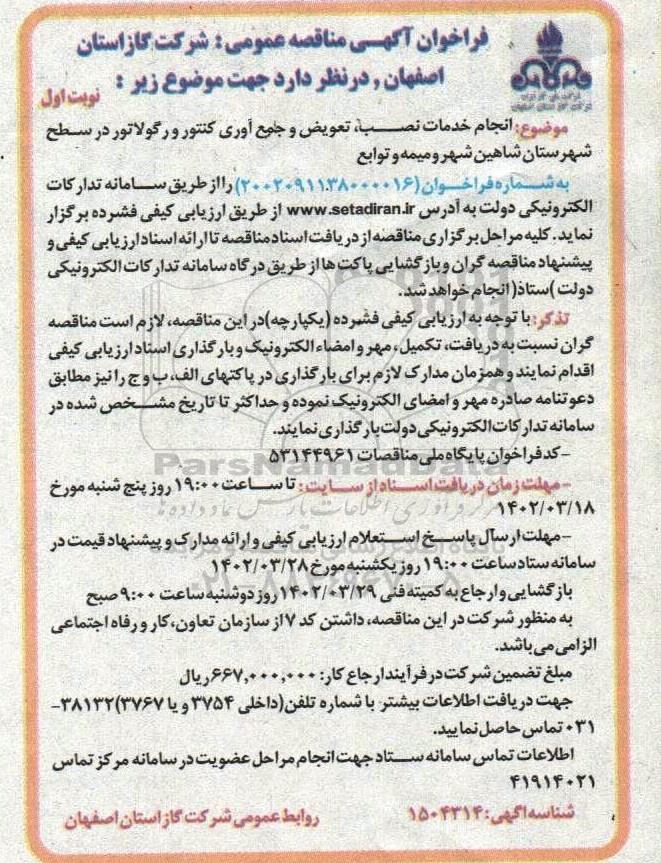 فراخوان آگهی مناقصه عمومی: شرکت گاز استان
اصفهان, در نظر دارد جهت موضوع زیر :
نوبت اول
شرکت ملی گاز ایران
شرکت گاز استان اصفهان
موضوع: انجام خدمات نصب، تعویض و جمع آوری کنتور و رگولاتور در سطح
شهرستان شاهین شهر و میمه و توابع
به شماره فراخوان (۲۰۰۲۰۹۱۱۳۸۰۰۰۰۱۶) را از طریق سامانه تدارکات
الکترونیکی دولت به آدرس www.setadiran.ir از طریق ارزیابی کیفی فشرده برگزار
نماید. کلیه مراحل برگزاری مناقصه از دریافت اسناد مناقصه تا ارائه اسناد ارزیابی کیفی و
پیشنهاد مناقصه گران و بازگشایی پاکت ها از طریق درگاه سامانه تدارکات الکترونیکی
دولت )ستاد( انجام خواهد شد.
تذکر: با توجه به ارزیابی کیفی فشرده (یکپارچه)در این مناقصه، لازم است مناقصه
گران نسبت به دریافت، تکمیل، مهر و امضاء الکترونیک و بارگذاری اسناد ارزیابی کیفی
اقدام نمایند و همزمان مدارک لازم برای بارگذاری در پاکتهای الف، ب و ج را نیز مطابق
دعوتنامه صادره مهر و امضای الکترونیک نموده و حداکثر تا تاریخ مشخص شده در
سامانه تدارکات الکترونیکی دولت بارگذاری نمایند.
-کد فراخوان پایگاه ملی مناقصات ۵۳۱۴۴۹۶۱
ParsNamadData
-مهلت زمان دریافت اسناد از سایت: تا ساعت ۱۹:۰۰ روز پنج شنبه مورخ
۱۴۰۲/۰۳/۱۸
-مهلت ارسال پاسخ استعلام ارزیابی کیفی و ارائه مدارک و پیشنهاد قیمت در
سامانه ستاد ساعت ۱۹:۰۰ روز یکشنبه مورخ ۱۴۰۲/۰۳/۲۸
بازگشایی و ارجاع به کمیته فنی ۱۴۰۲/۰۳/۲۹ روز دوشنبه ساعت ۹:۰۰ صبح
به منظور شرکت در این مناقصه، داشتن کد ۷ از سازمان تعاون، کار و رفاه اجتماعی
الزامی می باشد.
مبلغ تضمین شرکت در فرآیند ارجاع کار: ۶۶۷,۰۰۰,۰۰۰ ریال
جهت دریافت اطلاعات بیشتر با شماره تلفن (داخلی ۳۷۵۴ و یا ۳۷۶۷) ۳۸۱۳۲-
۰۳۱ تماس حاصل نمایید.
اطلاعات تماس سامانه ستاد جهت انجام مراحل عضویت در سامانه مرکز تماس
۴۱۹۱۴۰۲۱
شناسه آگهی: ۱۵۰۴۳۱۴
روابط عمومی شرکت گاز استان اصفهان